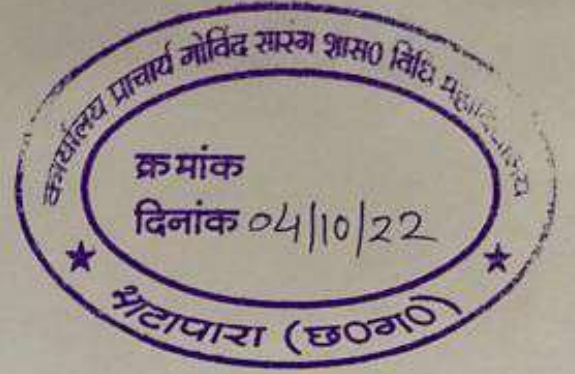 कार्यालय प्राचार्य गोविंद सारंग शास0 विधि महाविद्यालय
क्रमांक
दिनांक 04/10/22
भाटापारा (छ0ग0)